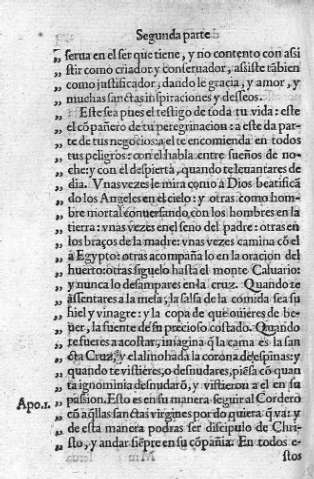 Segunda parte
„ serua en el ser que tiene, y no contento con assi
„ stir como criador y conseruador, assiste tãbien
„ como justificador, dando le gracia, y amor, y
„ muchas sanctas inspiraciones y desseos.
„ Este sea pues el testigo de toda tu vida: este
„ el cõpañero de tu peregrinacion: a este da par-
„ te de tus negocios: a el te encomienda en todos
„ tus peligros: con el habla entre sueños de no-
„ che: y con el despierta, quando te leuantares de
„ dia. Vnas vezes le mira como a Dios beatificã
„ do los Angeles en el cielo: y otras como hom-
„ bre mortal conuersando, con los hombres en la
„ tierra: vnas vezes en el seno del padre: otras en
„ los braços de la madre: vnas vezes camina cõ el
„ a Egypto: otras acompaña lo en la oracion del
„ huerto: otras siguelo hasta el monte Caluario:
„ y nunca lo desampares en la cruz. Quando te
„ assentares a la mesa, la salsa de la comida sea su
„ hiel y vinagre: y la copa de que quieres de be-
„ uer, la fuente de su precioso costado. Quando
„ te fueres a acostar, imagina q̃ la cama es la san
„ cta Cruz, y el almohada la corona de espinas: y
„ quando te vistieres, o desnudares, piẽsa cõ quan
„ ta ignominia desnudarõ, y vistieron a el en su
„ passion. Esto es en su manera seguir al Cordero
Apo.1.
„ cõ aq̃llas sanctas virgines por do quiera q̃ va: y
„ de esta manera podras ser discipulo de Chri-
„ sto, y andar siẽpre en su cõpañia. En todos e
stos